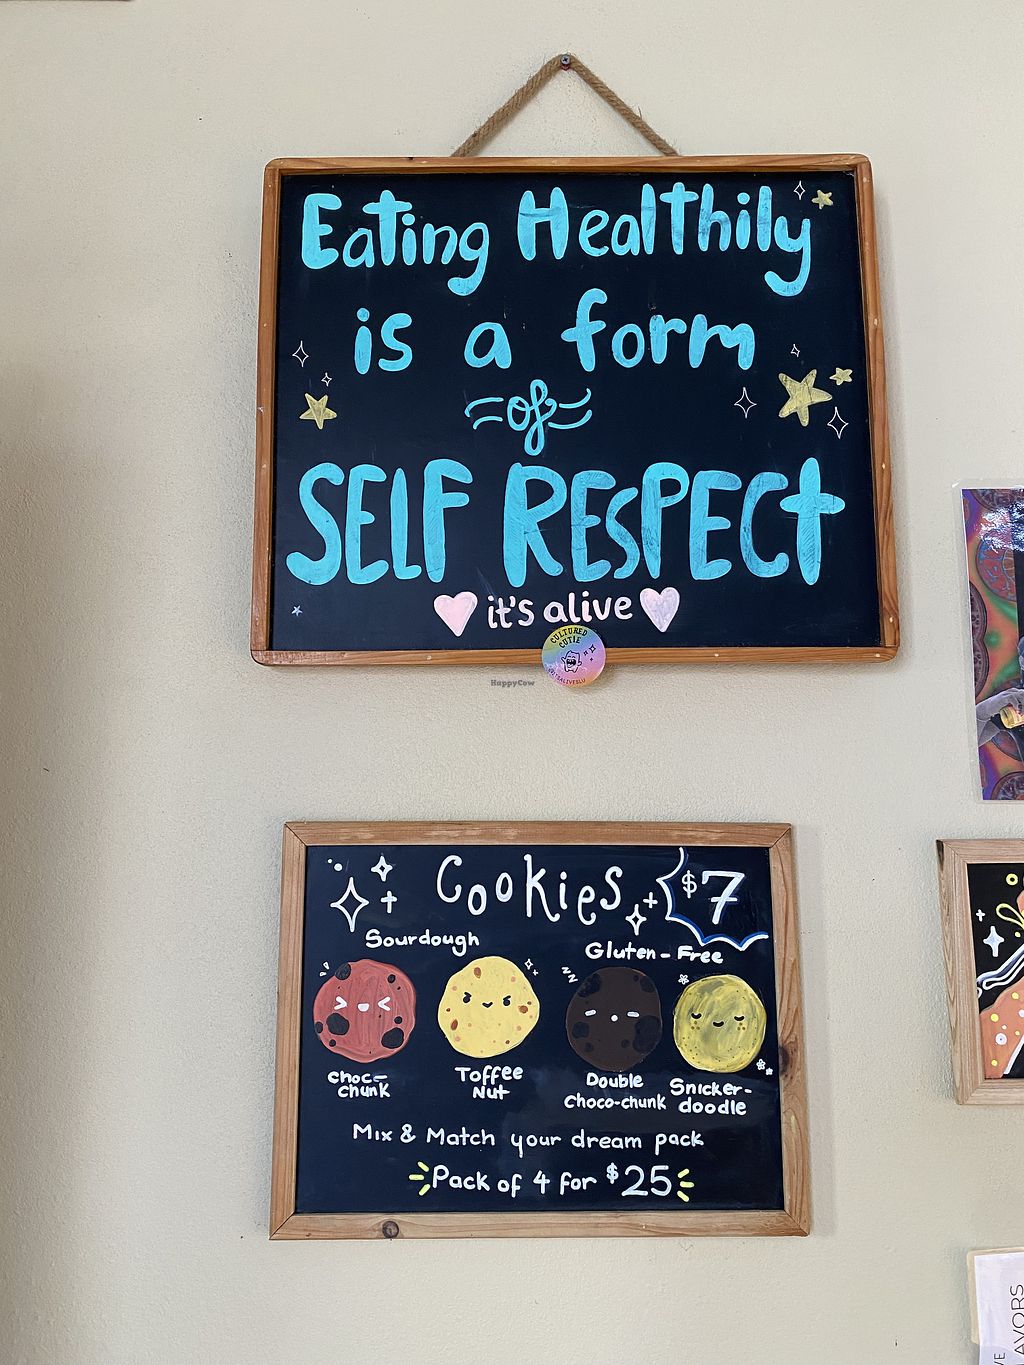 Eating Healthily
is a form
of
SELF RESPECT
it's alive
CULTURED
CUTIE
HappyCow
Cookies $7
Sourdough
Gluten-Free
Choc-
Chunk
Toffee
Nut
Double
Choco-chunk
Snicker-
doodle
Mix & Match your dream pack
Pack of 4 for $25